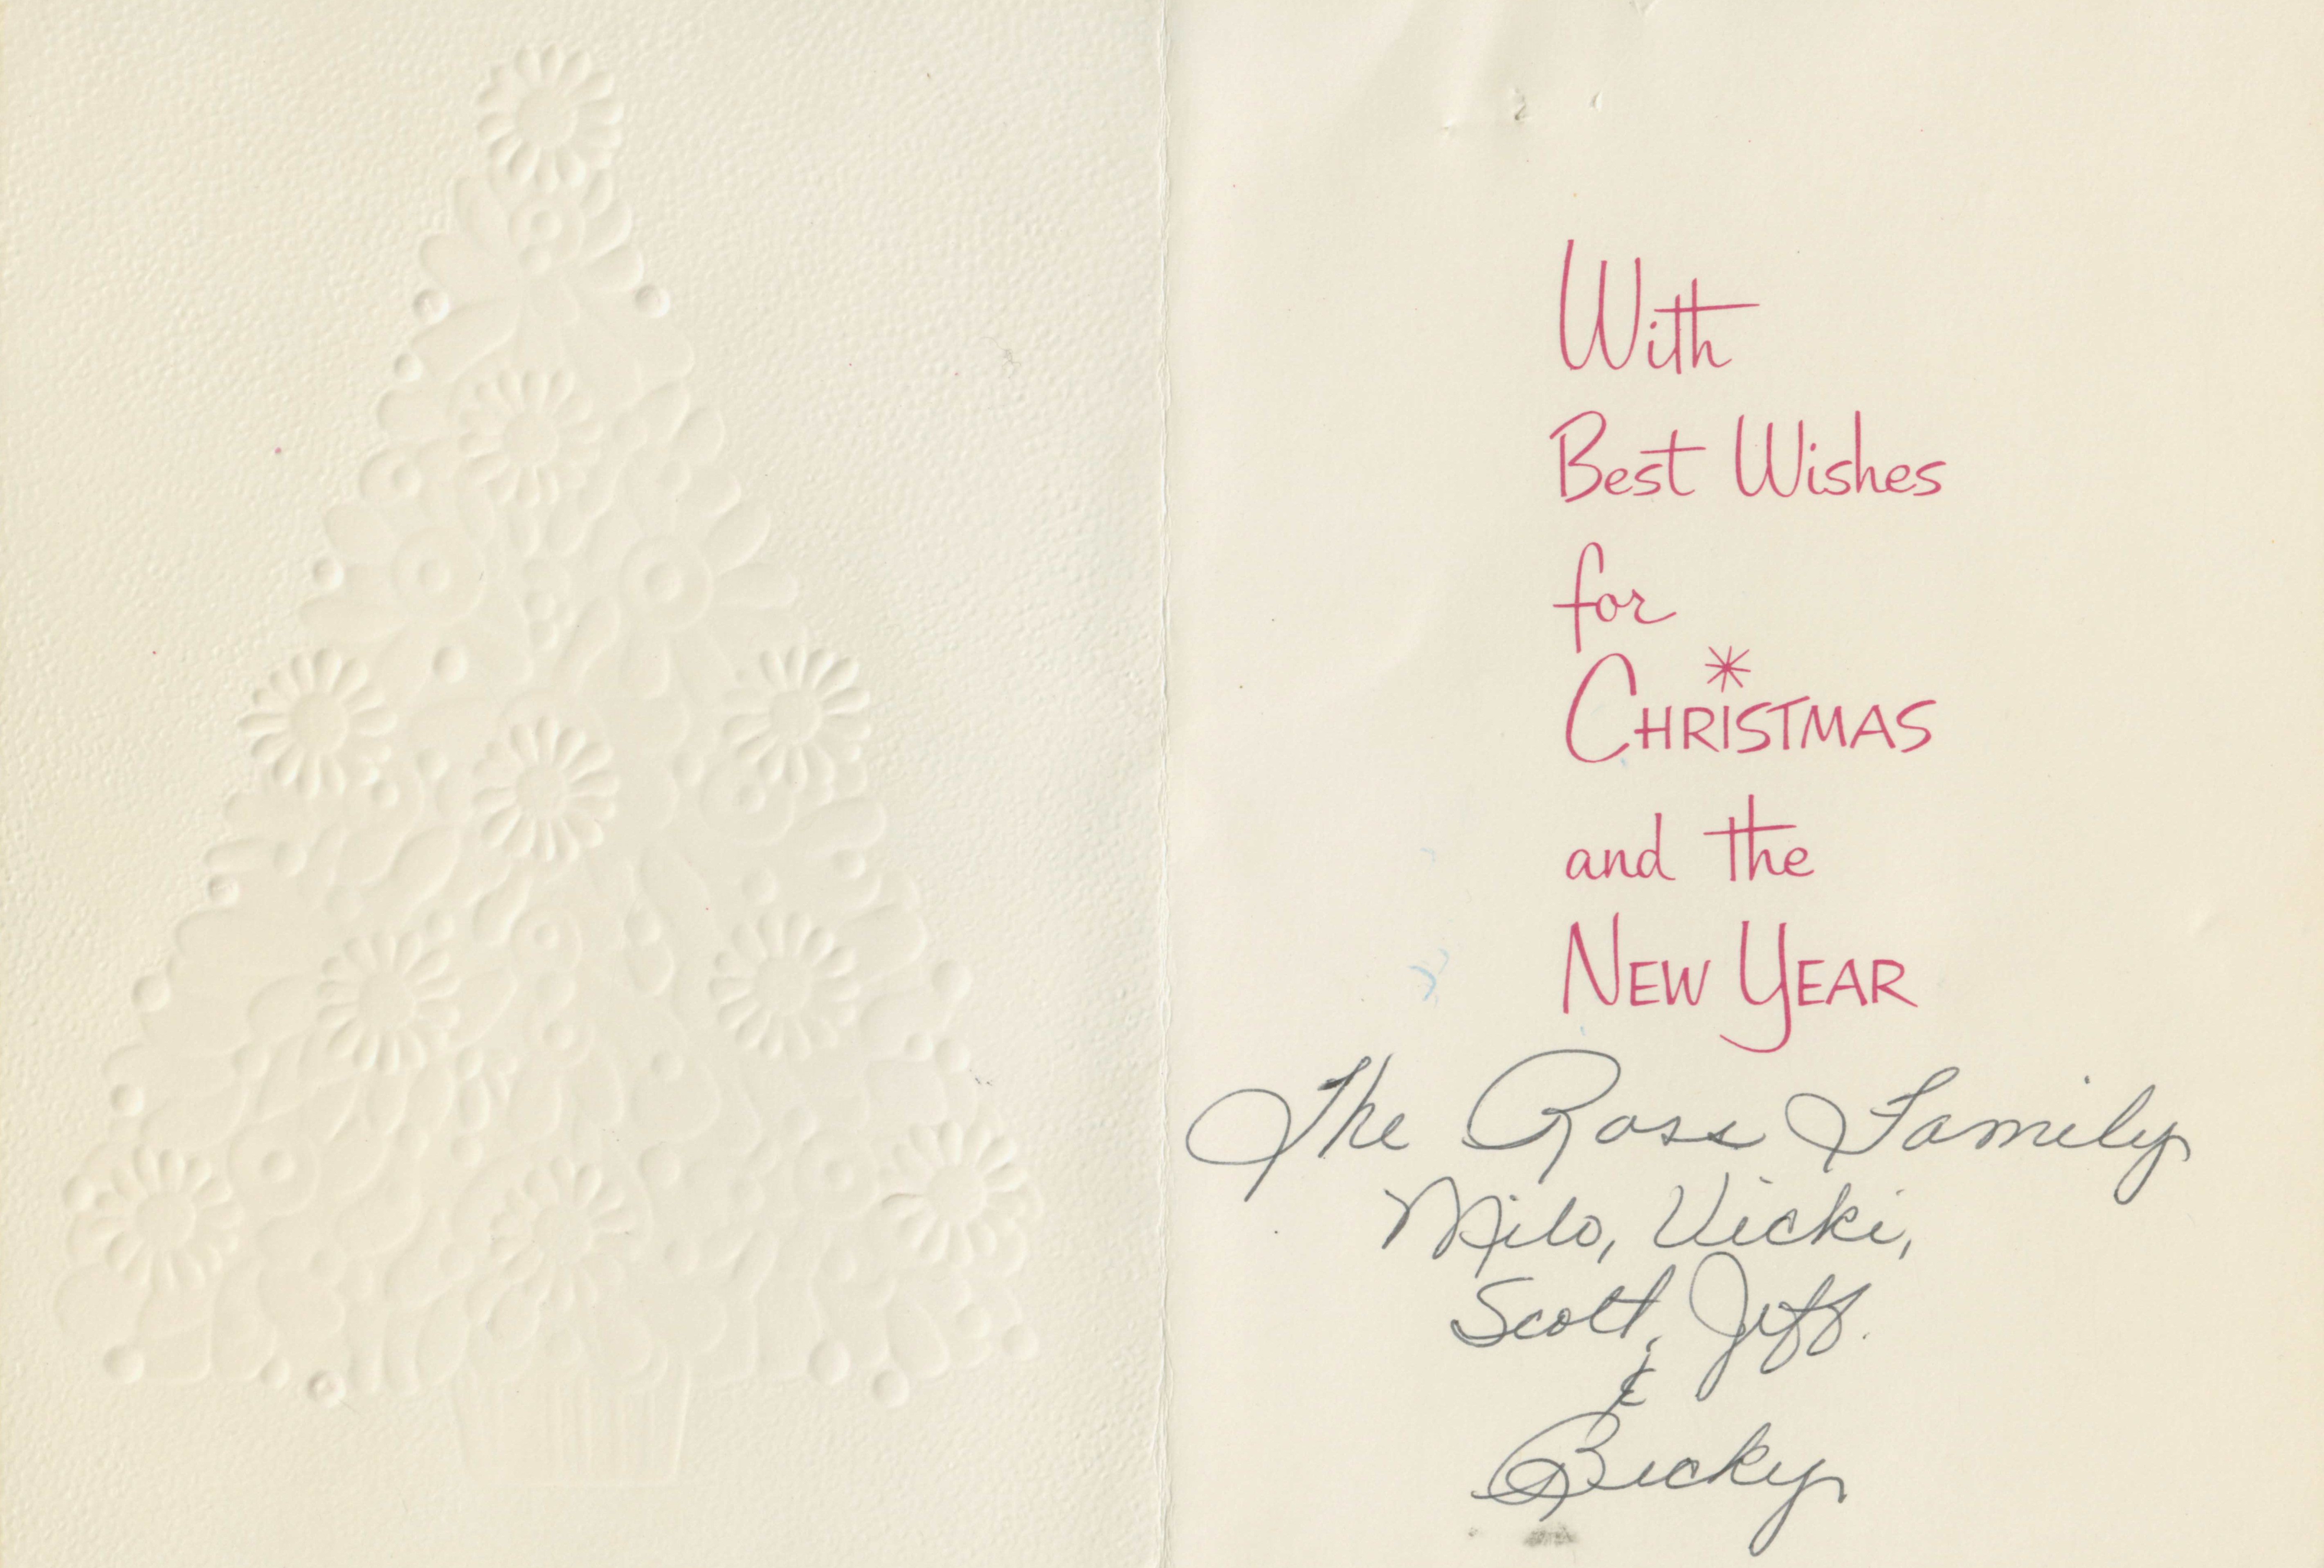 With
Best Wishes
for
CHRISTMAS
and the
NEW YEAR
The Ross Family
Milo, Vicki,
Scott, Jeff.
&
Becky